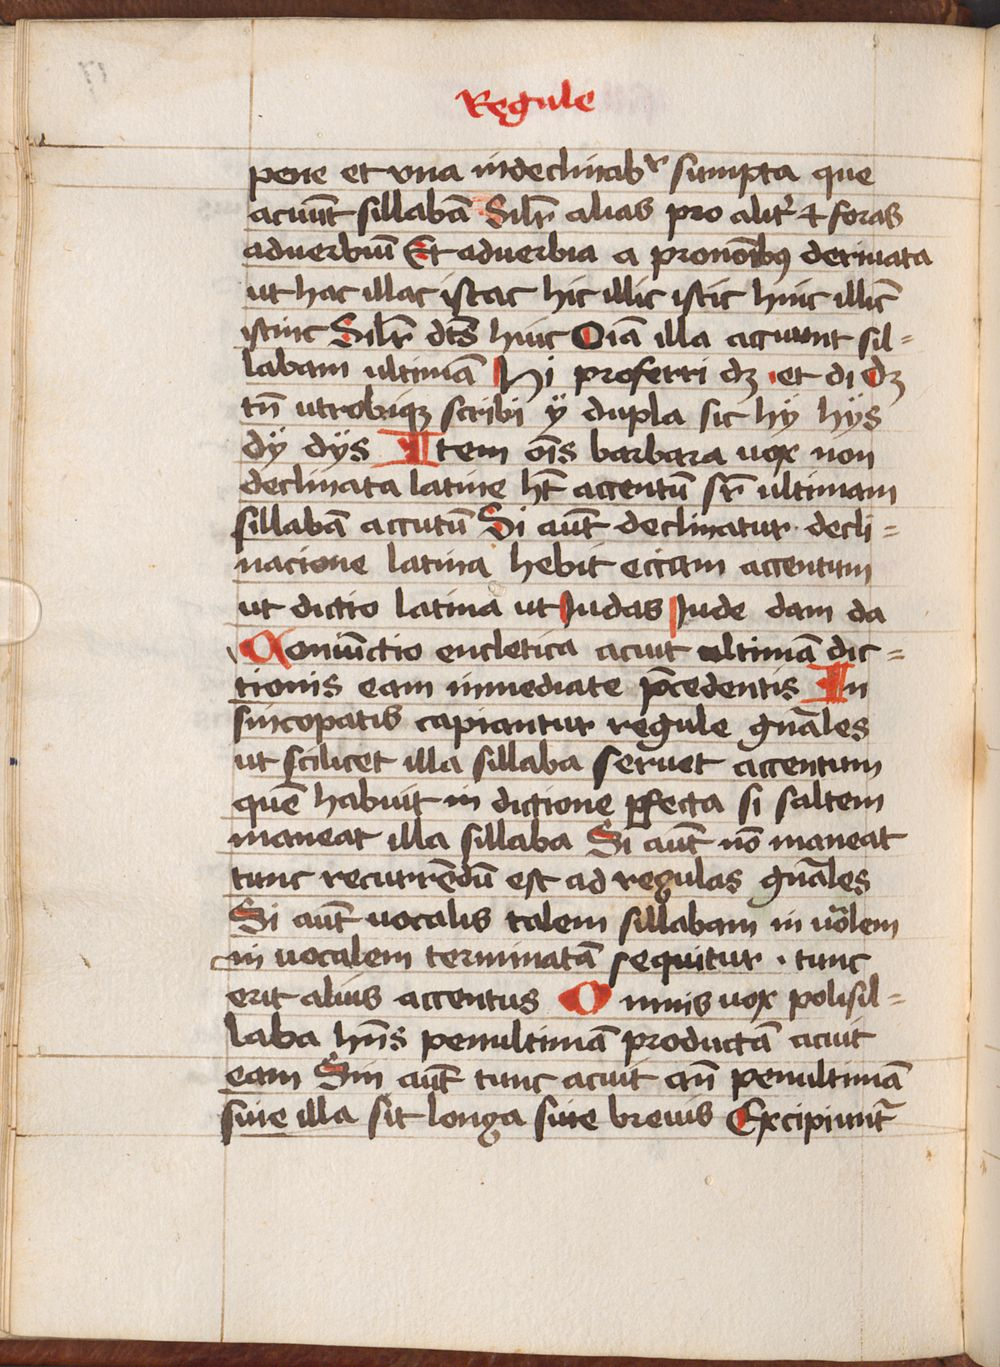 Regule
pene et vna indeclinabʳ sumpta que
acuūt sillabā Silr̄ alias pro alit' & foras
aduerbiū Et aduerbia a pronoībꝰ deriuata
ut hac illac istac hic illic istic hinc illīc
istinc Silr̄ dcs̄ huic Oīa illa accuunt sil=
labam ultimā Hi proferri dꝫ et di dꝫ
tn̄ utrobiqꝫ scribi ÿ dupla sic hÿ hÿs
dÿ dÿs Item oīs barbara uox non
declinata latine ht̄ accentū sr̄ ultimam
sillabā accutū Si aut̄ declinatur decli=
nacione latina hebit eciam accentum
ut dictio latina ut Iudas Iude dam da
Coniūctio encletica acuit ultimā dic=
tionis eam inmediate p̄cedentis In
sincopatis capiantur regule gn̄ales
ut scilicet illa sillaba seruet accentum
quē habuit in dictione ꝑfecta si saltem
maneat illa sillaba Si aut̄ nō maneat
tunc recurrēdū est ad regulas gn̄ales
Si aut̄ uocalis talem sillabam in uo͞lem
in uocalem terminatā sequitur . tunc
erit alius accentus Omnis uox polisil=
laba hn̄s penultimā productā acuit
eam Sin aut̄ tunc acuit an̄ penultimā
siue illa sit longa siue breuis Excipiunt᷑